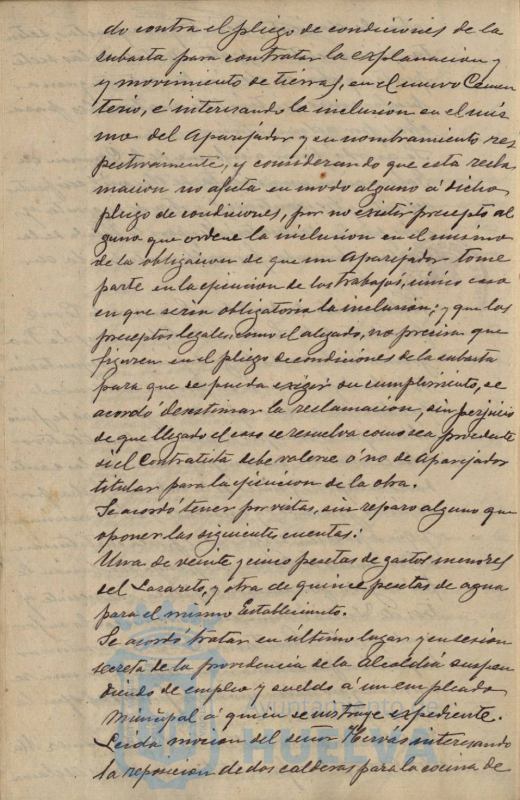 do contra el pliego de condiciones de la
subasta para contratar la explanacion y
y movimiento de tierras, en el nuevo Cemen
terio, é interesando la inclusion en el mis
mo del Aparejador y su nombramiento res
pectivamente, y considerando que esta recla
macion no afecta en modo alguno á dicho
pliego de condiciones, por no existir precepto al
guno que ordene la inclusion en el mismo
de la obligacion de que un Aparejador tome
parte en la ejecucion de los trabajos, único caso
en que seria obligatoria la inclusion; y que los
preceptos legales, como el alegado, no precisa que
figuren en el pliego de condiciones de la subasta
para que se pueda exigir su cumplimiento, se
acordó desestimar la reclamacion, sin perjuicio
de que llegado el caso se resuelva como sea procedente
si el Contratista debe valerse ó no de Aparejador
titular para la ejecucion de la obra.
Se acordó tener por vistas, sin reparo alguno que
oponer las siguientes cuentas:
Una de veinte y cinco pesetas de gastos menores
del Lazareto, y otra de quince pesetas de agua
para el mismo Establecimto.
Se acordó tratar en último lugar y en sesion
secreta de la providencia de la Alcaldiá suspen
diendo de empleo y sueldo á un empleado
municipal á quien se instruye expediente.
Leida mocion del señor Hervás interesando
la reposicion de dos calderas para la cocina de
Ayuntamiento de
HUELVA